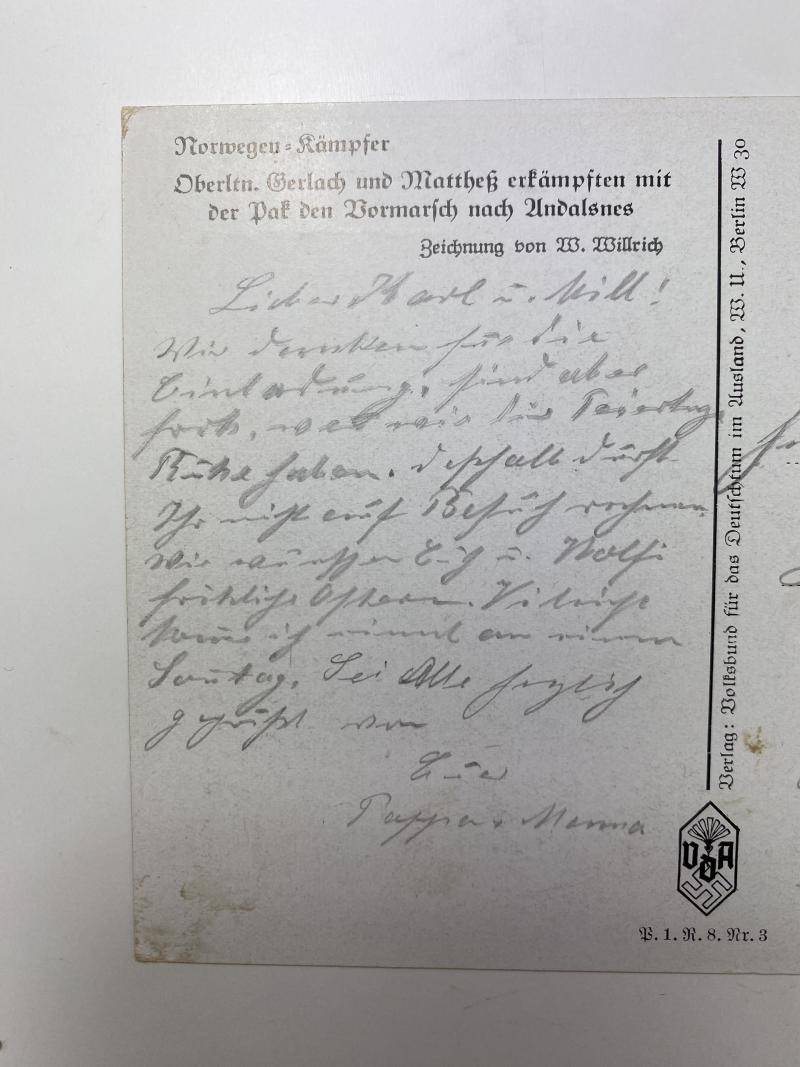 Norwegen-Kämpfer
Oberltn. Gerlach und Mattheß erkämpften mit
der Pak den Vormarsch nach Andalsnes
Zeichnung von W. Willrich
Lieber Karl u. Mill!
Wir danken für die
Einladung, sind aber
froh, wen wir die Feiertage
Ruhe haben. deßhalb dürft
Ihr nicht auf Besuch rechnen
Wir wünschen Euch u. Wolfi
fröhliche Ostern. Vileicht
komme ich einmal an einem
Sontag. Sei Alle herzlich
gegrüßt von
Eure
Pappa u Mama
Verlag: Volksbund für das Deutschtum im Ausland, W. U., Berlin W 30
VDA
P. 1. R. 8. Nr. 3